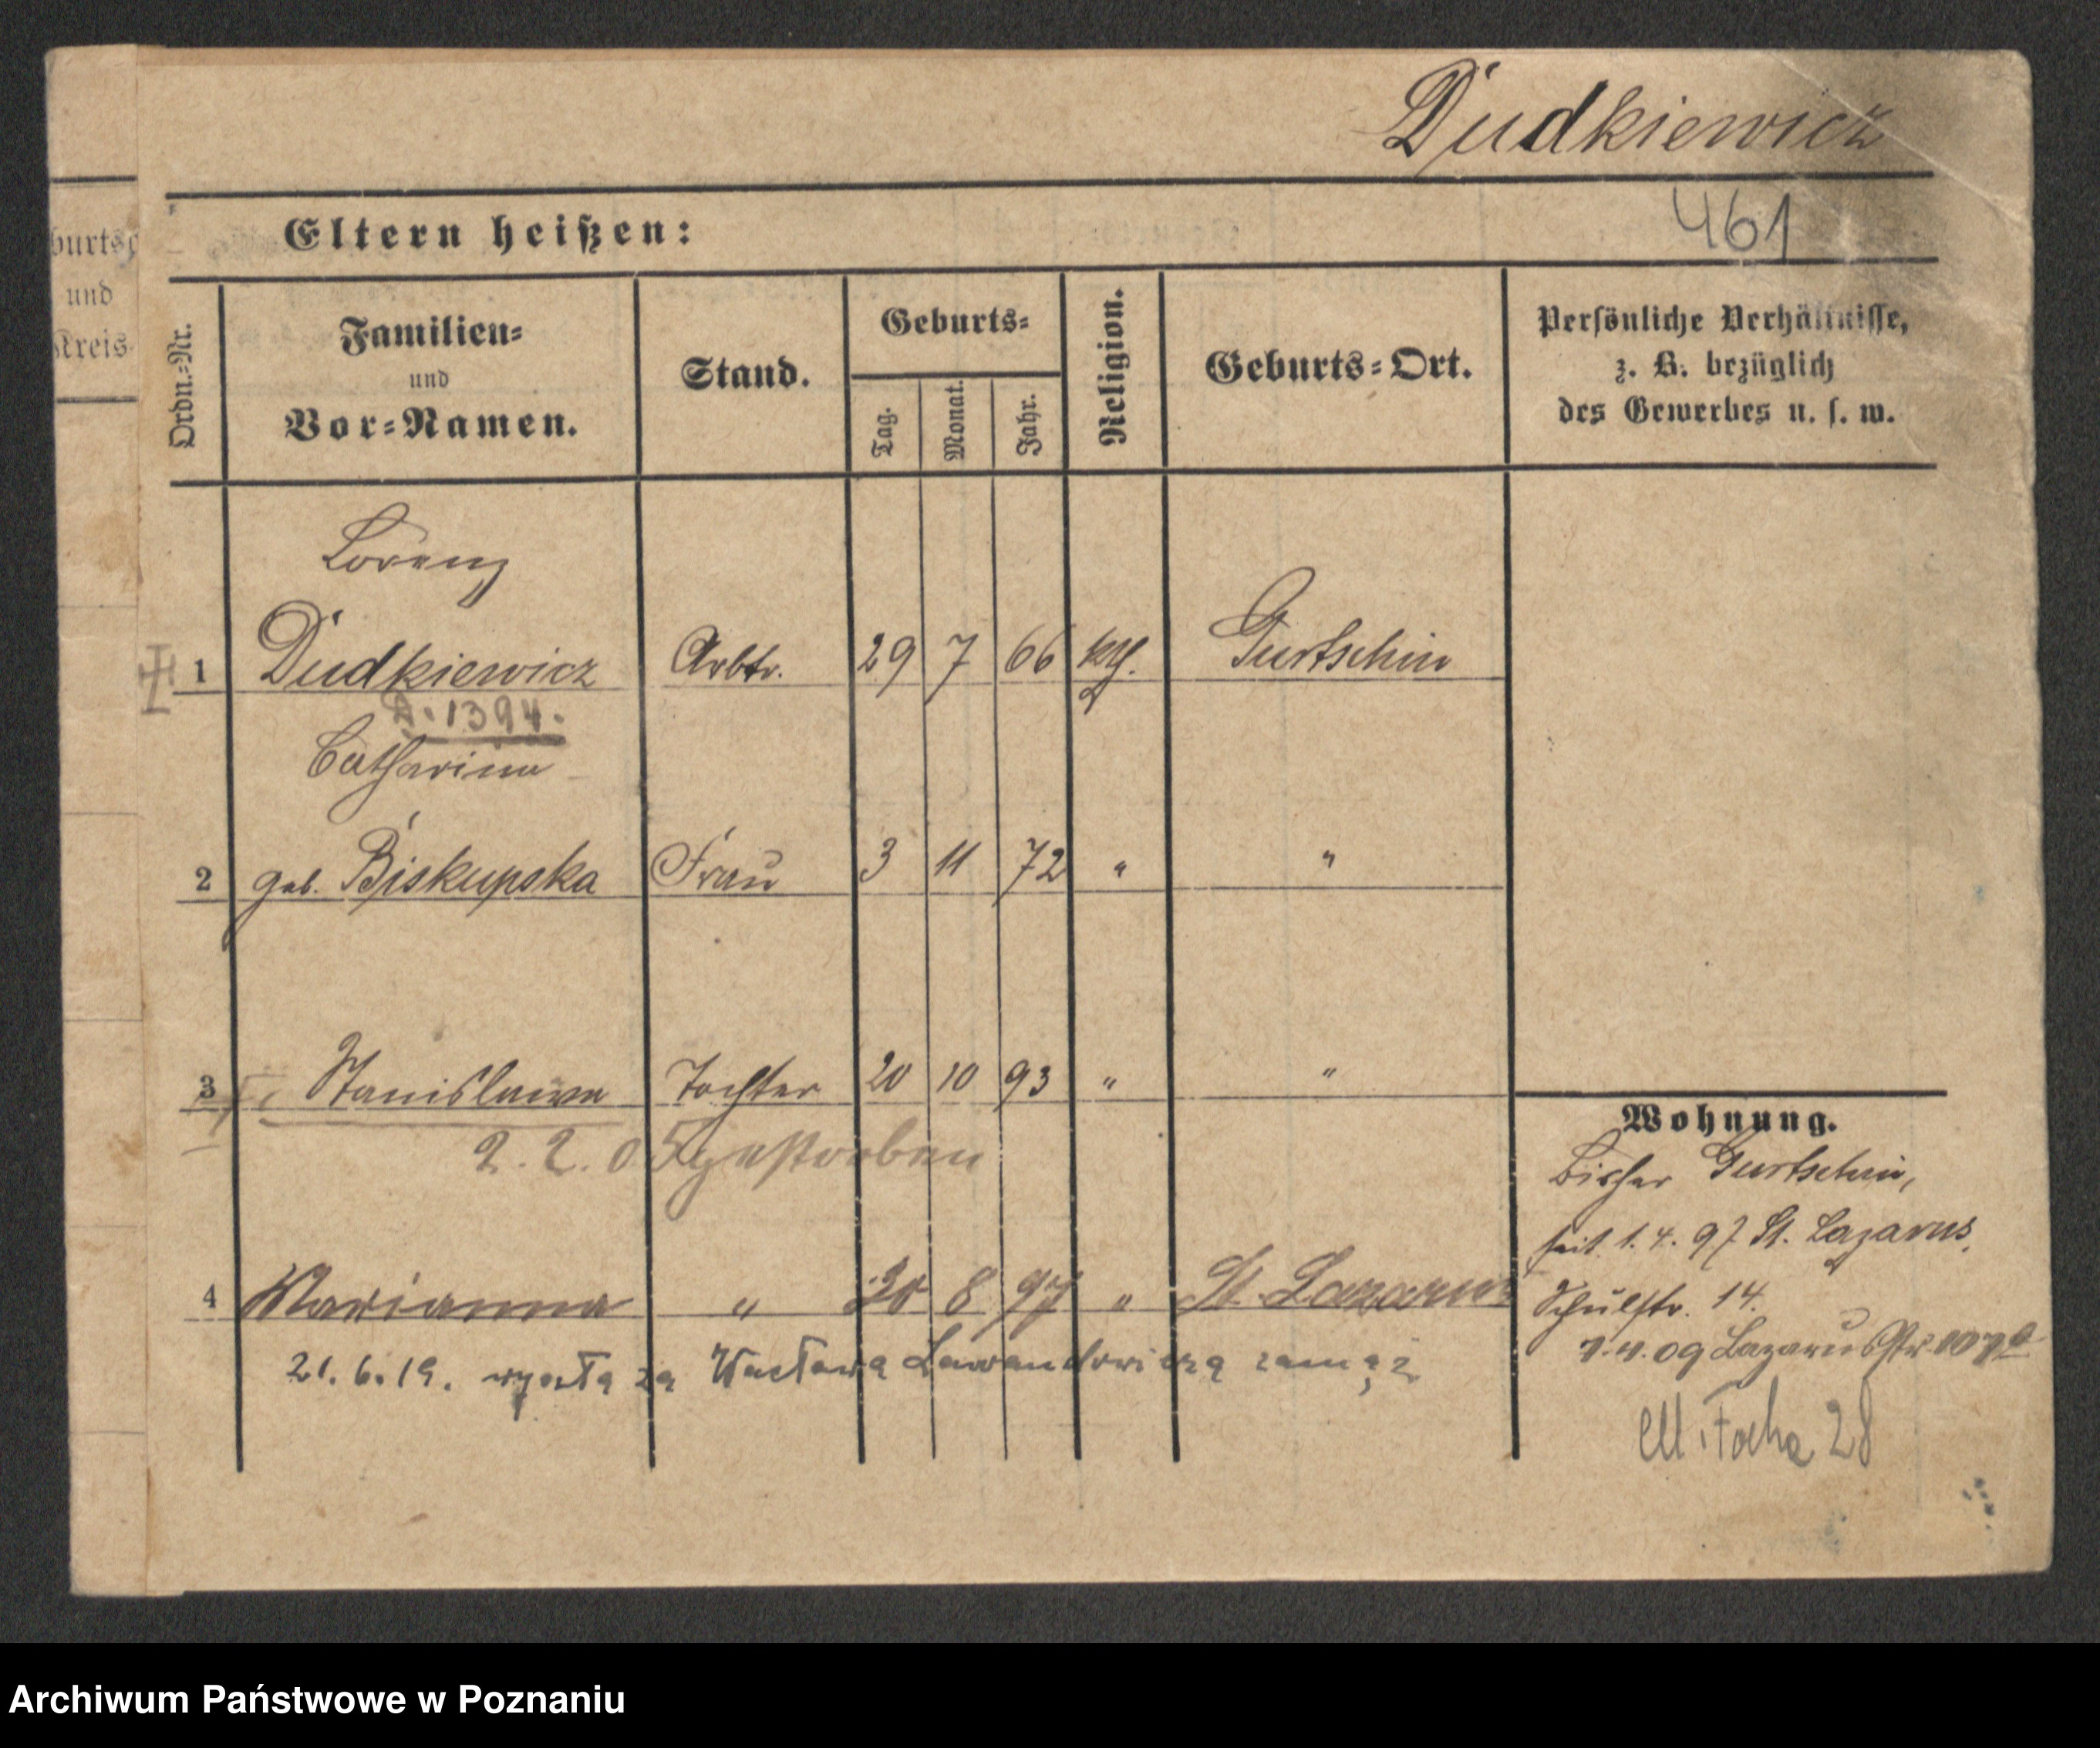 Dudkiewicz
461
Eltern heißen:
burtso
und
Kreis
Ordn.-Nr.
Familien-
und
Vor-Namen.
Stand.
Geburts-
Tag.
Monat.
Jahr.
Religion.
Geburts-Ort.
Persönliche Verhältnisse,
z. B. bezüglich
des Gewerbes u. s. w.
Lorenz
1 Dudkiewicz Arbtr. 29 7 66 kth. Gurtschin
1394.
Catharina
2 geb. Biskupska Frau 3 11 72 " "
3 Stanislawa Tochter 20 10 93 " "
2. 2. 05 gestorben
4 Marianna " 30 8 97 " St. Lazarus
21. 6. 19. wyszła za Wacława Lewandowicza zamąż
Wohnung.
Bisher Gurtschin,
seit 1. 4. 97 St. Lazarus,
Schulstr. 14.
09 Lazarus Str.
M. Focha 28
Archiwum Państwowe w Poznaniu